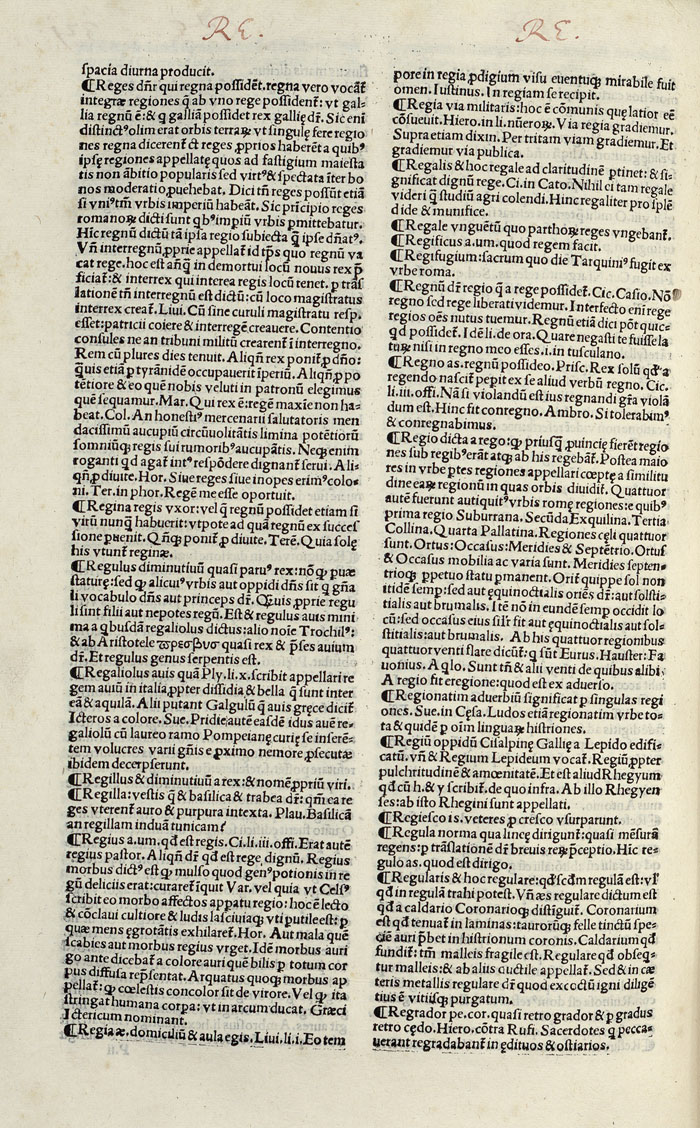 RE.
RE.
spacia diurna producit.
¶Reges dr̃ qui regna possidẽt. regna vero vocãt̃
integræ regiones q̃ ab vno rege possident̃: vt gal-
lia regnũ ẽ: & q̃ galliã possidet rex gallię dr̃. Sic eni
distinctꝰ olim erat orbis terraꝝ vt singulę fere regio
nes regna dicerent̃ ct̃ reges ꝓprios haberẽt a quibꝰ
ipsę regiones appellatę quos ad fastigium maiesta
tis non ãbitio popularis sed virtꝰ & spectata ĩter bo
nos moderatio ꝓuehebat. Dici tñ reges possũt etiã
si vniꝰ tm̃ vrbis imperiũ habeãt. Sic prĩcipio reges
romanoꝝ dicti sunt qbꝰ impiũ vrbis pmittebatur.
Hic regnũ dictũ tã ipsa regio subiecta q̃ ipse dñatꝰ.
Vñ interregnũ ꝓprie appellat̃ id tp̃s quo regnũ va
cat rege. hoc est añq̃ in demortui locũ nouus rex p̃
ficiat̃: & interrex qui interea regis locũ tenet. p trãs
latiõne tñ interregnũ est dictũ: cũ loco magistratus
interrex creat̃. Liui. Cũ sine curuli magistratu resp.
esset: patricii coiere & interregẽ creauere. Contentio
consules ne an tribuni militũ crearent̃ ĩ interregno.
Rem cũ plures dies tenuit. Aliqñ rex ponit̃ ꝓ dño:
quis etiã p tyrãnidẽ occupauerit ĩperiũ. Aliqñ ꝓ po
tẽtiore & eo quẽ nobis veluti in patronũ elegimus
quẽ sequamur. Mar. Qui rex ẽ: regẽ maxĩe non ha-
beat. Col. An honestiꝰ mercenarii salutatoris men
dacissimũ aucupiũ circũuolitãtis limina potẽtiorũ
somniũq; regis sui rumoribꝰ aucupãtis. Neq; enim
roganti qd agat̃ intꝰ respõdere dignant̃ serui. Ali-
qñ ꝓ diuite. Hor. Siue reges siue inopes erimꝰ colo-
ni. Ter. in phor. Regẽ me esse oportuit.
¶Regina regis vxor: vel q̃ regnũ possidet etiam si
virũ nunq̃ habuerit: vtpote ad quã regnũ ex succes
sione ꝓuenit. Qñq; ponit̃ ꝓ diuite. Terẽ. Quia solę
his vtunt̃ reginæ.
¶Regulus diminutiuũ quasi paruꝰ rex: nõ q; puæ
staturę: sed q; alicuiꝰ vrbis aut oppidi dñs sit q̃ gña
li vocabulo dñs aut princeps dr̃. Quis ꝓprie regu
li sunt filii aut nepotes regũ. Est & regulus auis mini
ma a q̃busdã regaliolus dictus: alio noĩe Trochilꝰ:
& ab Aristotele πρεσβυσ quasi rex & p̃ses auium
dr̃. Et regulus genus serpentis est.
¶Regaliolus auis quã Ply. li. x. scribit appellari re
gem auiũ in italia ꝓpter dissidia & bella q̃ sunt inter
eã & aquilã. Alii putant Galgulũ q̃ auis gręce dicit̃
Icteros a colore. Sue. Pridie autẽ easdẽ idus auẽ re-
galiolũ cũ laureo ramo Pompeianę curię se inserẽ-
tem volucres varii gñis e ꝓximo nemore ꝓsecutæ
ibidem decerpserunt.
¶Regillus & diminutiuũ a rex: & nomẽ ꝓpriũ viri.
¶Regilla: vestis q̃ & basilica & trabea dr̃: qm̃ ea re
ges vterent̃ auro & purpura intexta. Plau. Basilicã
an regillam induã tunicam?
¶Regius a. um. qd est regis. Ci. li. iii. offi. Erat autẽ
regius pastor. Aliqñ dr̃ qd est rege dignũ. Regius
morbus dictꝰ est q; mulso quod genꝰ potionis in re
gũ deliciis erat: curaret̃ iquit Var. vel quia vt Celsꝰ
scribit eo morbo affectos apparatu regio: hoc ẽ lecto
& cõclaui cultiore & ludis lasciuiaq; vti putile est: p
quæ mens ęgrotãtis exhilaret̃. Hor. Aut mala quẽ
scabies aut morbus regius vrget. Idẽ morbus auri
go ante dicebat̃ a colore auri quẽ bilis p totum cor
pus diffusa rep̃sentat. Arquatus quoq; morbus ap
pellat̃: q; cœlestis concolor sit de virore. Vel q; ita
stringat humana corpa: vt in arcum ducat. Græci
Ictericum nominant.
¶Regia æ. domiciliũ & aula egis. Liui. li. i. Eo tem
pore in regia ꝓdigium visu euentuq; mirabile fuit
omen. Iustinus. In regiam se recipit.
¶Regia via militaris: hoc ẽ cõmunis quę latior eẽ
cõsueuit. Hiero. in li. nũeroꝝ. Via regia gradiemur.
Supra etiam dixin. Per tritam viam gradiemur. Et
gradiemur via publica.
¶Regalis & hoc regale ad claritudinẽ ptinet: & si-
gnificat dignũ rege. Ci. in Cato. Nihil ei tam regale
videri q̃ studiũ agri colendi. Hinc regaliter pro splẽ
dide & munifice.
¶Regale vnguẽtũ quo parthoꝝ reges vngebant̃.
¶Regificus a. um. quod regem facit.
¶Regifugium: sacrum quo die Tarquiniꝰ fugit ex
vrbe roma.
¶Regnũ dr̃ regio q̃ a rege possidet̃. Cic. Casio. Nõ
regno sed rege liberati videmur. Interfecto eni rege
regios oẽs nutus tuemur. Regnũ etiã dici põt quic-
qd possidet̃. Idẽ li. de ora. Quare negasti te fuisse la
tuꝝ nisi in regno meo esses. i. in tusculano.
¶Regno as. regnũ possideo. Prisc. Rex solũ qd a
regendo nascit̃ pepit ex se aliud verbũ regno. Cic.
li. iii. offi. Nã si violandũ est ius regnandi grã violã
dum est. Hinc fit conregno. Ambro. Si tolerabimꝰ
& conregnabimus.
¶Regio dicta a rego: q; priusq̃ ꝓuincię fierẽt regio
nes sub regibꝰ erãt atq; ab his regebãt̃. Postea maio
res in vrbe ptes regiones appellari cœpte a similitu
dine eaꝝ regionũ in quas orbis diuidit̃. Quattuor
autẽ fuerunt antiquitꝰ vrbis romę regiones: e quibꝰ
prima regio Suburrana. Secũda Exquilina. Tertia
Collina. Quarta Pallatina. Regiones cęli quattuor
sunt. Ortus: Occasus: Meridies & Septẽtrio. Ortus
& Occasus mobilia ac varia sunt. Meridies septen-
trioq; ppetuo statu pmanent. Orit̃ quippe sol non
itidẽ semp: sed aut ęquinoctialis oriẽs dr̃: aut solsti-
tialis aut brumalis. Itẽ nõ in eundẽ semp occidit lo
cũ: sed occasus eius sil̃r fit aut ęquinoctialis aut sol-
stitialis: aut brumalis. Ab his quattuor regionibus
quattuor venti flare dicũt̃: q̃ sũt Eurus. Hauster: Fa
uonius. Aqlo. Sunt tñ & alii venti de quibus alibi.
A regio fit eregione: quod est ex aduerso.
¶Regionatim aduerbiũ significat p singulas regi
ones. Sue. in Cęsa. Ludos etiã regionatim vrbe to-
ta & quidẽ p oĩm linguaꝝ histriones.
¶Regiũ oppidũ Cisalpinę Gallię a Lepido edifi-
catũ. vñ & Regium Lepideum vocat̃. Regiũ ꝓpter
pulchritudinẽ & amœnitatẽ. Et est aliud Rhegyum
qd cũ h. & y scribit̃. de quo infra. Ab illo Rhegyen
ses: ab isto Rhegini sunt appellati.
¶Regiesco is. veteres ꝓ cresco vsurparunt.
¶Regula norma qua lineę dirigunt̃: quasi mẽsurã
regens: p trãslationẽ dr̃ breuis reꝝ p̃ceptio. Hic re-
gulo as. quod est dirigo.
¶Regularis & hoc regulare: qd scd̃m regulã est: vl̃
qd in regulã trahi potest. Vñ æs regulare dictum est
qd a caldario Coronarioq; distiguit̃. Coronarium
est qd tenuat̃ in laminas: tauroruq; felle tinctũ spe-
ciẽ auri p̃bet in histrionum coronis. Caldarium qd
fundit̃: tm̃ malleis fragile est. Regulare qd obseq-
tur malleis: & ab aliis ductile appellat̃. Sed & in cæ
teris metallis regulare dr̃ quod excoctũ igni diligẽ
tius ẽ vitiisq; purgatum.
¶Regrador pe. cor. quasi retro grador & p gradus
retro cędo. Hiero. cõtra Rufi. Sacerdotes q pecca-
uerant regradabant̃ in ędituos & ostiarios.